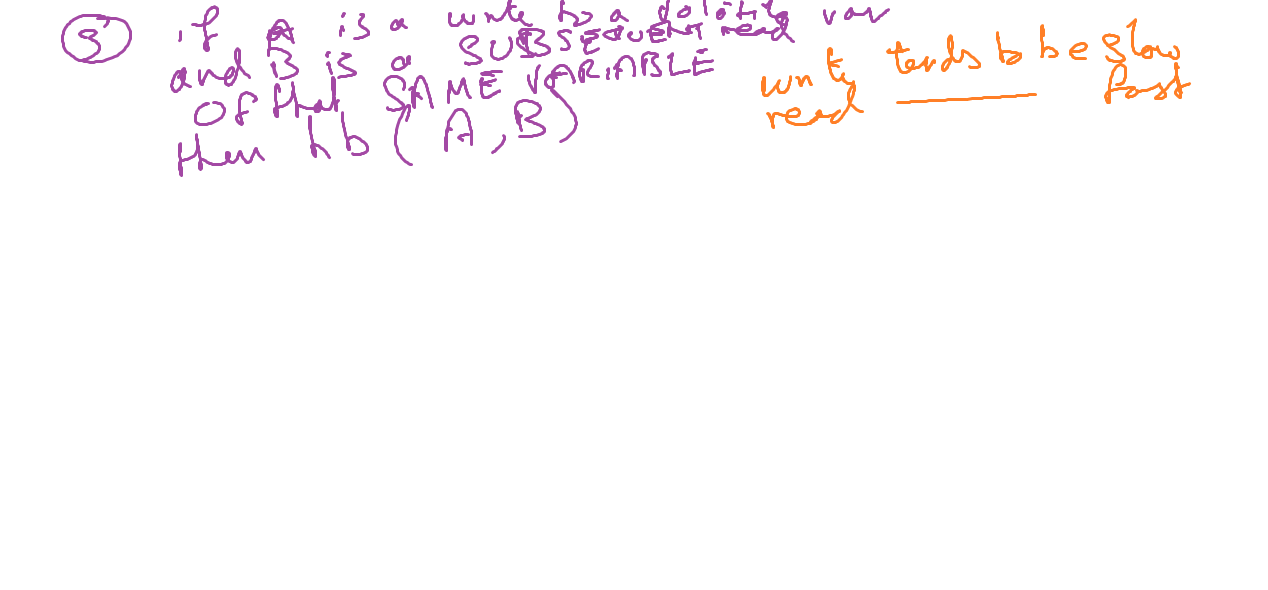 5 if A is a write to a volatile var
and B is a SUBSEQUENT read
of that SAME VARIABLE
then hb ( A, B )
write tends to be slow
read ——— fast